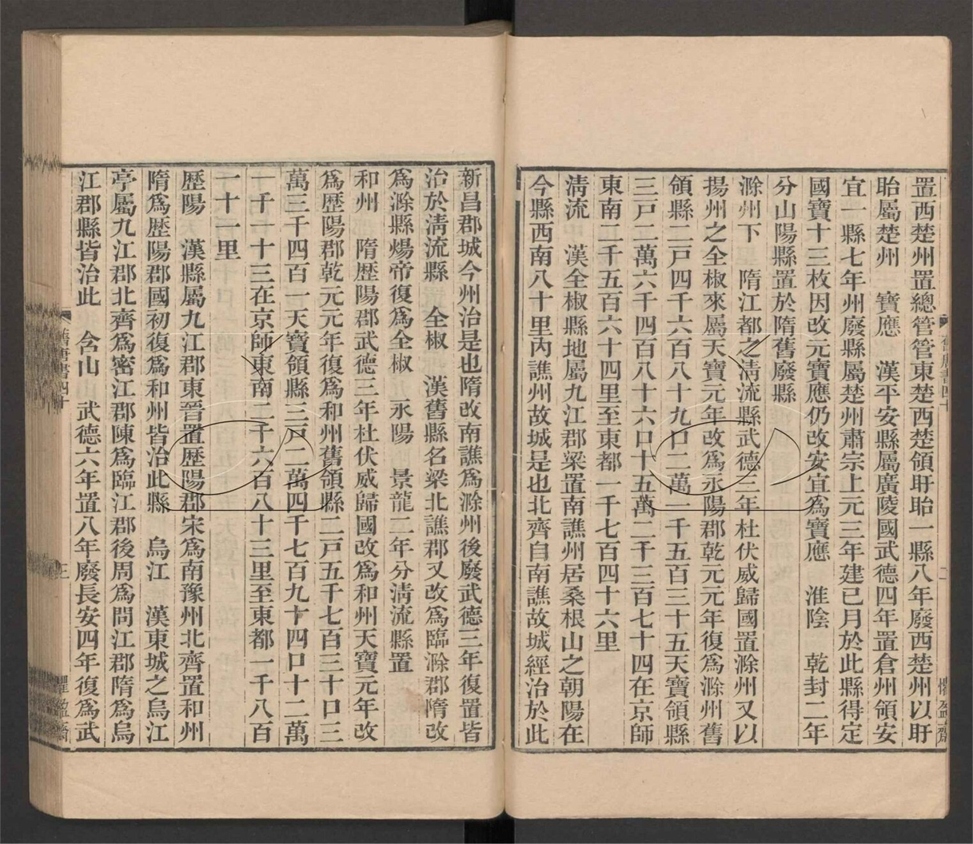 置西楚州置總管管東楚西楚領盱眙一縣八年廢西楚州以盱
眙屬楚州　寶應　漢平安縣屬廣陵國武德四年置倉州領安
宜一縣七年州廢縣屬楚州肅宗上元三年建巳月於此縣得定
國寶十三枚因改元寶應仍改安宜為寶應　淮陰　乾封二年
分山陽縣置於隋舊廢縣
滁州下　隋江都之清流縣武德三年杜伏威歸國置滁州又以
揚州之全椒來屬天寶元年改為永陽郡乾元元年復為滁州舊
領縣二戶四千六百八十九口二萬一千五百三十五天寶領縣
三戶二萬六千四百八十六口十五萬二千三百七十四在京師
東南二千五百六十四里至東都一千七百四十六里
清流　漢全椒縣地屬九江郡梁置南譙州居桑根山之朝陽在
今縣西南八十里內譙州故城是也北齊自南譙故城經治於此
新昌郡城今州治是也隋改南譙為滁州後廢武德三年復置皆
治於清流縣　全椒　漢舊縣名梁北譙郡又改為臨滁郡隋改
為滁縣煬帝復為全椒　永陽　景龍二年分清流縣置
和州　隋歷陽郡武德三年杜伏威歸國改為和州天寶元年改
為歷陽郡乾元元年復為和州舊領縣二戶五千七百三十口三
萬三千四百一天寶領縣三戶二萬四千七百九十四口十二萬
一千一十三在京師東南二千六百八十三里至東都一千八百
一十一里
歷陽　漢縣屬九江郡東晉置歷陽郡宋為南豫州北齊置和州
隋為歷陽郡國初復為和州皆治此縣　烏江　漢東城之烏江
亭屬九江郡北齊為密江郡陳為臨江郡後周為問江郡隋為烏
江郡縣皆治此　含山　武德六年置八年廢長安四年復為武
舊唐書四十
三
懼盈齋